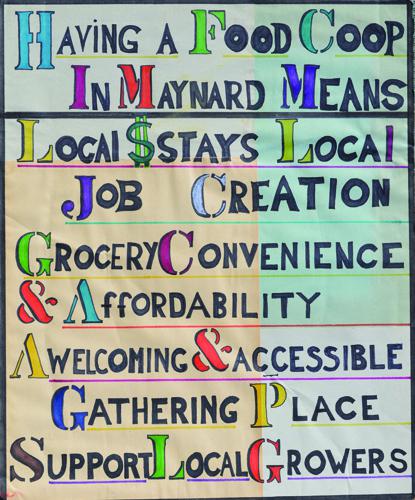 HAVING A FOOD COOP
IN MAYNARD MEANS
LOCAl $STAYS LOCAl
JOB CREATION
GROCERY CONVENIENCE
& AffORDABILITY
A WELCOMING & ACCESSIBLE
GATHERING PLACE
SUPPORT LOCAL GROWERS